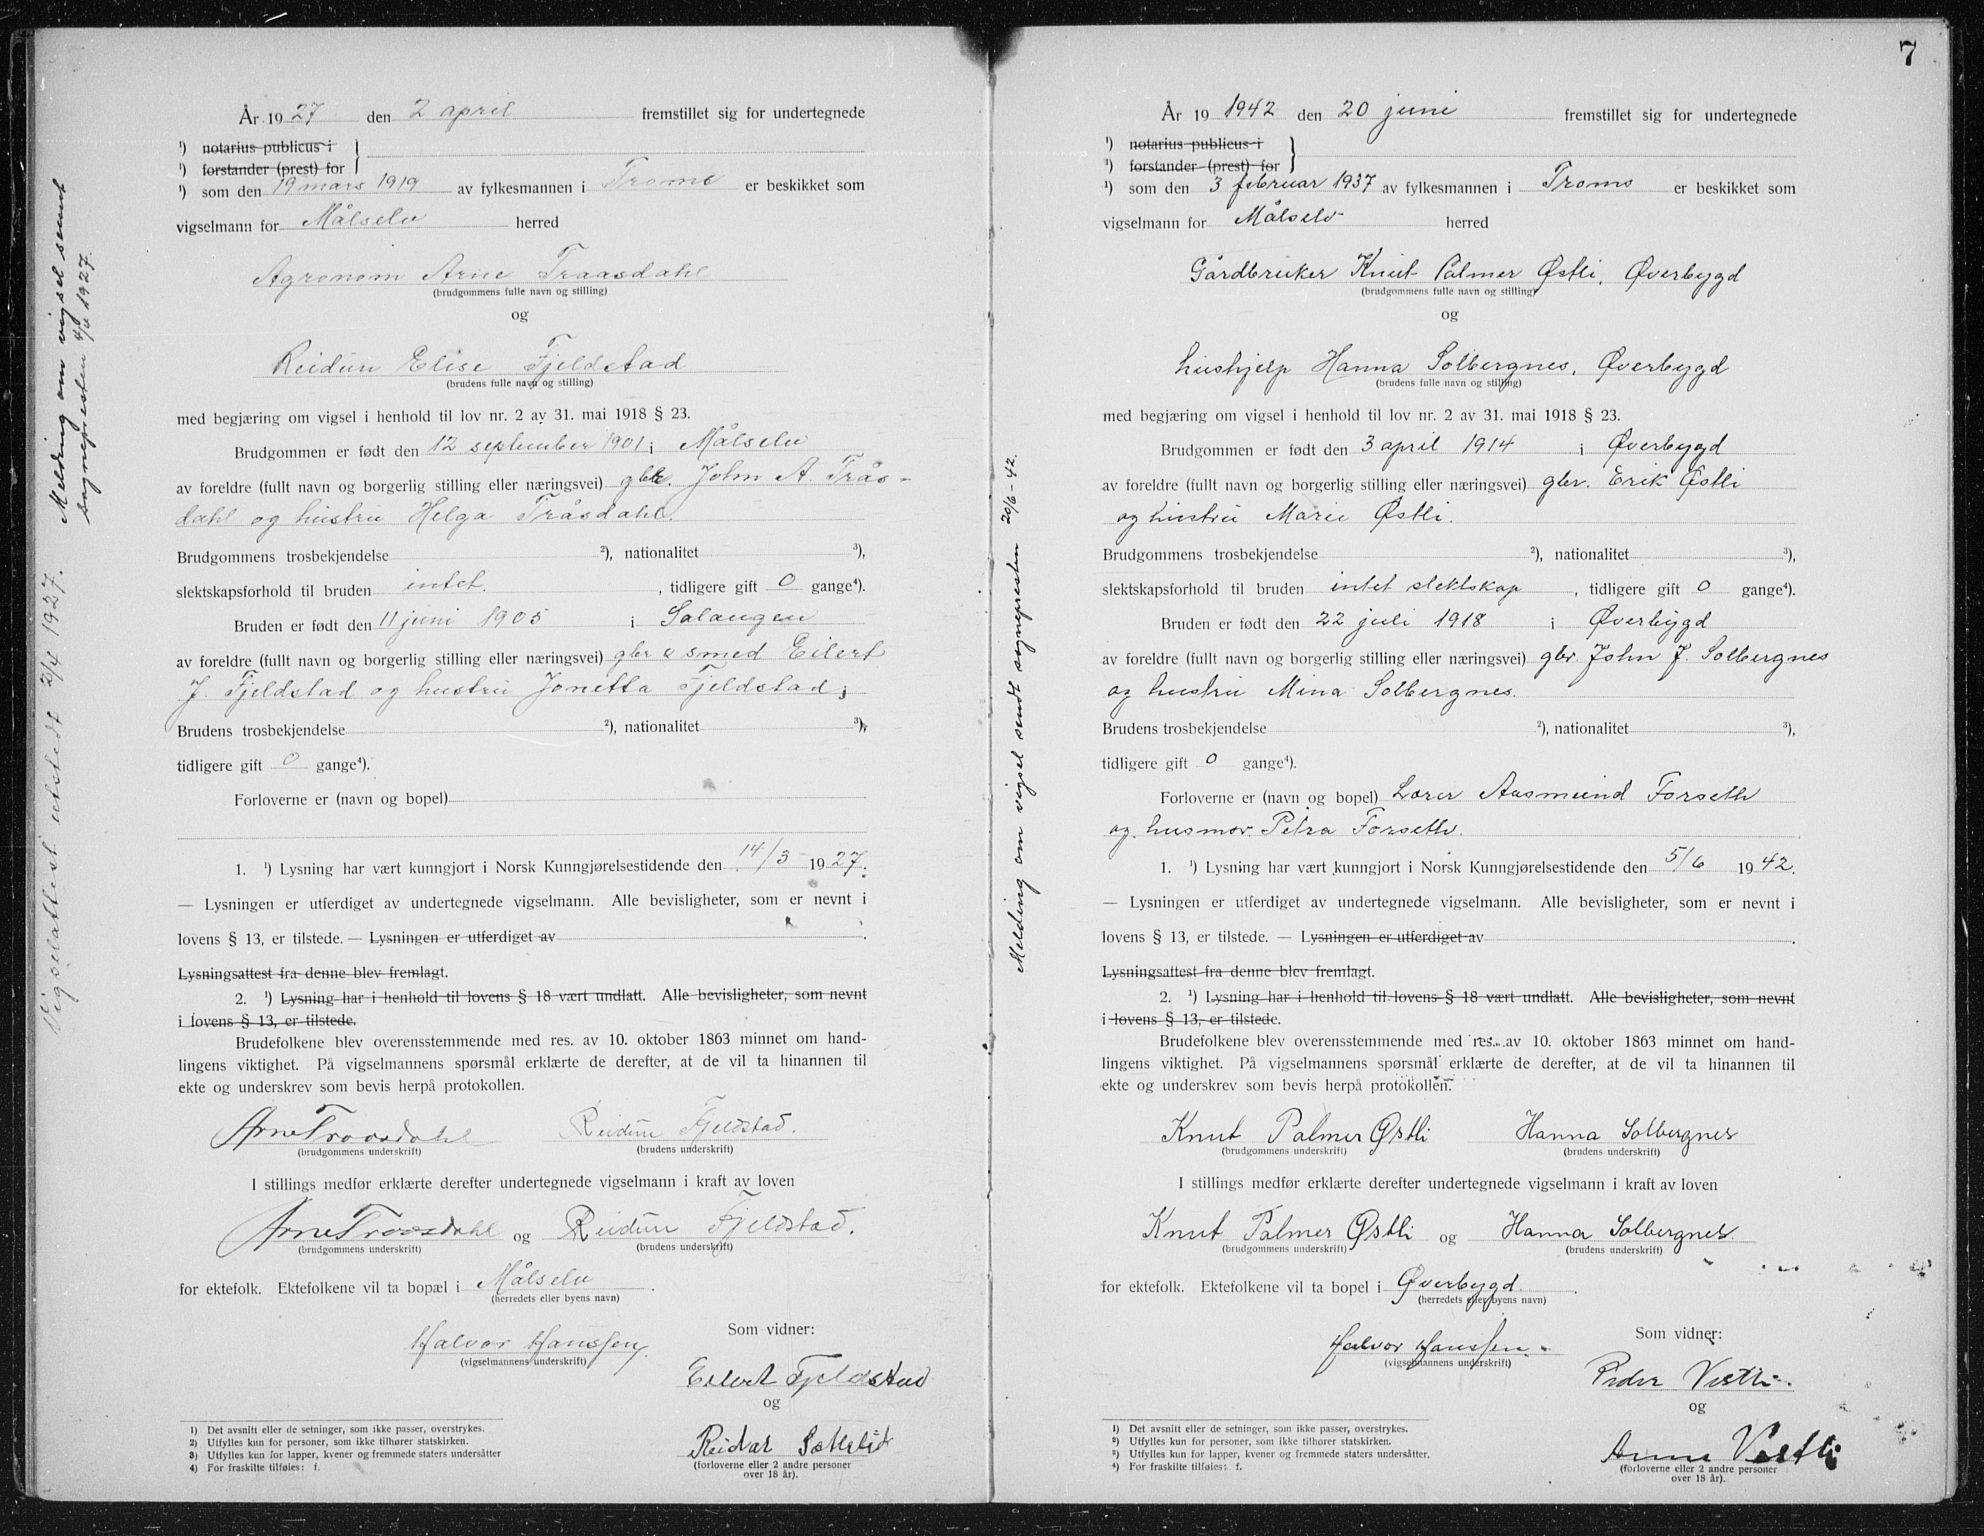 År 1927 den 2 april fremstillet sig for undertegnede
¹) notarius publicus i
¹) forstander (prest) for
¹) som den 19 mars 1919 av fylkesmannen i Troms er beskikket som
vigselmann for Målselv herred
Agronom Arne Traasdahl
(brudgommens fulle navn og stilling)
og
Reidun Elise Fjeldstad
(brudens fulle navn og stilling)
med begjæring om vigsel i henhold til lov nr. 2 av 31. mai 1918 § 23.
Brudgommen er født den 12 september 1901 i Målselv
av foreldre (fullt navn og borgerlig stilling eller næringsvei) gbr. John A. Trås-
dahl og hustru Helga Tråsdahl.
Brudgommens trosbekjendelse ²), nationalitet ³),
slektskapsforhold til bruden intet. , tidligere gift 0 gange⁴).
Bruden er født den 11 juni 1905 i Salangen
av foreldre (fullt navn og borgerlig stilling eller næringsvei) gbr & smed Eilert
J. Fjeldstad og hustru Jonetta Fjeldstad;
Brudens trosbekjendelse ²), nationalitet ³),
tidligere gift 0 gange⁴).
Forloverne er (navn og bopel)
1. ¹) Lysning har vært kunngjort i Norsk Kunngjørelsestidende den 14/3 1927.
— Lysningen er utferdiget av undertegnede vigselmann. Alle bevisligheter, som er nevnt i
lovens § 13, er tilstede. — Lysningen er utferdiget av
Lysningsattest fra denne blev fremlagt.
2. ¹) Lysning har i henhold til lovens § 18 vært undlatt. Alle bevisligheter, som nevnt
i lovens § 13, er tilstede.
Brudefolkene blev overensstemmende med res. av 10. oktober 1863 minnet om hand-
lingens viktighet. På vigselmannens spørsmål erklærte de derefter, at de vil ta hinannen til
ekte og underskrev som bevis herpå protokollen.
Arne Traasdahl Reidun Fjeldstad.
(brudgommens underskrift) (brudens underskrift)
I stillings medfør erklærte derefter undertegnede vigselmann i kraft av loven
Arne Traasdahl og Reidun Fjeldstad.
(brudgommens underskrift) (brudens underskrift)
for ektefolk. Ektefolkene vil ta bopæl i Målselv .
(herredets eller byens navn)
Halvor Hanssen
(vigselmannens underskrift)
Som vidner:
Eilert Fjeldstad
og
Reidar
(forloverne eller 2 andre personer
over 18 år).
1) Det avsnitt eller de setninger, som ikke passer, overstrykes.
2) Utfylles kun for personer, som ikke tilhører statskirken.
3) Utfylles kun for lapper, kvener og fremmede staters undersåtter
4) For fraskilte tilføies: f.
Vigselattest utstedt 2/4 1927.
Melding om vigsel sendt
sognepresten 4/4 1927.
7
År 19 1942 den 20 juni fremstillet sig for undertegnede
¹) notarius publicus i
¹) forstander (prest) for
¹) som den 3 februar 1937 av fylkesmannen i Troms er beskikket som
vigselmann for Målselv herred
Gårdbruker Knut Palmer Østli, Øverbygd
(brudgommens fulle navn og stilling)
og
hushjelp Hanna Solbergnes, Øverbygd
(brudens fulle navn og stilling)
med begjæring om vigsel i henhold til lov nr. 2 av 31. mai 1918 § 23.
Brudgommen er født den 3 april 1914 i Øverbygd
av foreldre (fullt navn og borgerlig stilling eller næringsvei) gbr. Erik Østli
og hustru Marie Østli.
Brudgommens trosbekjendelse ²), nationalitet ³),
slektskapsforhold til bruden intet slektskap , tidligere gift 0 gange⁴).
Bruden er født den 22 juli 1918 i Øverbygd
av foreldre (fullt navn og borgerlig stilling eller næringsvei) gbr. John J. Solbergnes
og hustru Mina Solbergnes.
Brudens trosbekjendelse ²), nationalitet ³),
tidligere gift 0 gange⁴).
Forloverne er (navn og bopel) Lærer Aasmund Forseth
og husmor Petra Forseth.
1. ¹) Lysning har vært kunngjort i Norsk Kunngjørelsestidende den 5/6 1942.
— Lysningen er utferdiget av undertegnede vigselmann. Alle bevisligheter, som er nevnt i
lovens § 13, er tilstede. — Lysningen er utferdiget av
Lysningsattest fra denne blev fremlagt.
2. ¹) Lysning har i henhold til lovens § 18 vært undlatt. Alle bevisligheter, som nevnt
i lovens § 13, er tilstede.
Brudefolkene blev overensstemmende med res. av 10. oktober 1863 minnet om hand-
lingens viktighet. På vigselmannens spørsmål erklærte de derefter, at de vil ta hinannen til
ekte og underskrev som bevis herpå protokollen.
Knut Palmer Østli Hanna Solbergnes
(brudgommens underskrift) (brudens underskrift)
I stillings medfør erklærte derefter undertegnede vigselmann i kraft av loven
Knut Palmer Østli og Hanna Solbergnes.
(brudgommens underskrift) (brudens underskrift)
for ektefolk. Ektefolkene vil ta bopel i Øverbygd .
(herredets eller byens navn)
Halvor Hanssen
(vigselmannens underskrift)
Som vidner:
Peder Vestli
og
Anna Vestli
(forloverne eller 2 andre personer
over 18 år).
¹) Det avsnitt eller de setninger, som ikke passer, overstrykes.
²) Utfylles kun for personer, som ikke tilhører statskirken.
³) Utfylles kun for lapper, kvener og fremmede staters undersåtter.
⁴) For fraskilte tilføies: f.
Melding om vigsel sendt sognepresten 20/6-42.